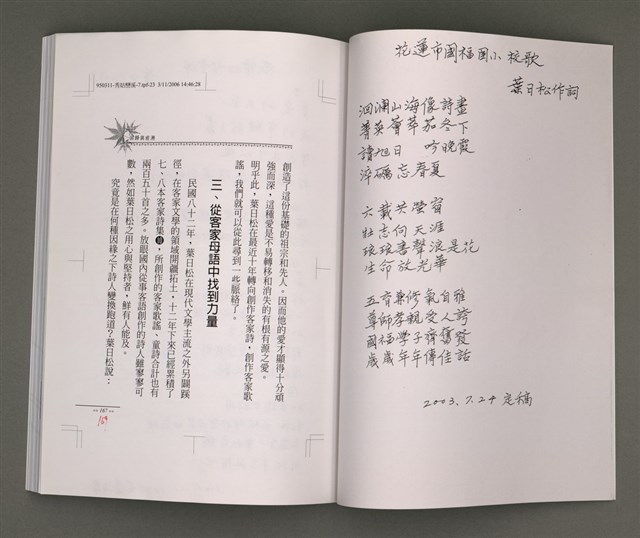 950311-秀姑巒溪-7.tpf-23  3/11/2006  14:46:28
創造了這份基礎的祖宗和先人。因而他的愛才顯得十分頑
強而深，這種愛是不易轉移和消失的有根有源之愛。
明乎此，葉日松在最近十年轉向創作客家詩，創作客家歌
謠，我們就可以從此尋到一些脈絡了。
三、從客家母語中找到力量
民國八十二年，葉日松在現代文學主流之外另闢蹊
徑，在客家文學的領域開疆拓土，十二年下來已經累積了
七、八本客家詩集，所創作的客家歌謠、童詩合計也有
兩百五十首之多。放眼國內從事客語創作的詩人雖寥寥可
數，然如葉日松之用心與堅持者，鮮有人能及。
究竟是在何種因緣之下詩人變換跑道？葉日松說：
167
169
花蓮市國福國小校歌
葉日松作詞
洄瀾山海像詩畫
菁英薈萃茄苳下
讀旭日 吟晚霞
淬礪忘春夏
六載共螢窗
壯志向天涯
琅琅書聲浪是花
生命放光華
五育兼修氣自雅
尊師孝親受人誇
國福學子齊奮發
歲歲年年傳佳話
2003.7.24 定稿